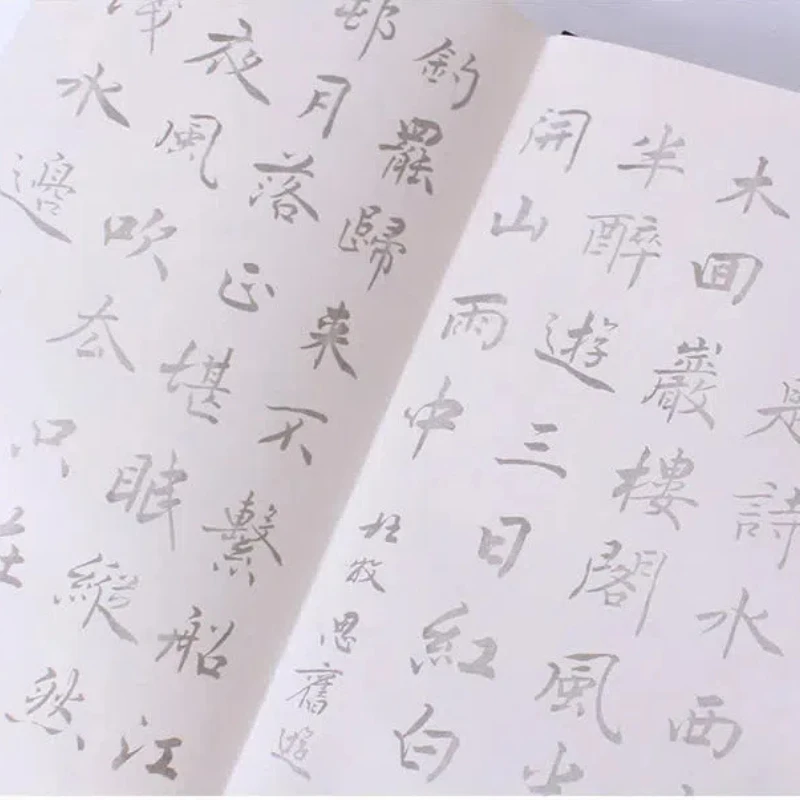 詩水西
木囬巖樓閣風
半醉遊三日紅白
開山雨中
杜牧思舊遊
釣罷歸來不繫船江
邨月落正堪眠縱然
夜風吹去只在
水邊